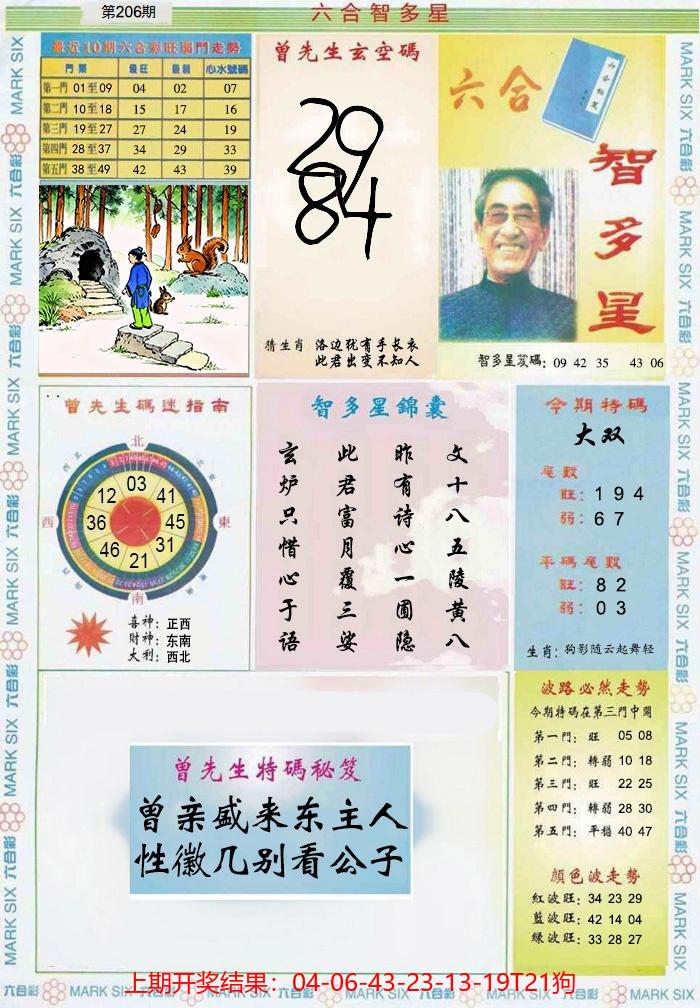 第206期
六合智多星
最近10期六合彩旺弱門走勢
門類 最旺 最弱 心水號碼
第一門 01至09 04 02 07
第二門 10至18 15 17 16
第三門 19至27 27 24 19
第四門 28至37 34 29 33
第五門 38至49 42 43 39
曾先生玄空碼
29
84
猜生肖 洛边犹有手长衣
此君出变不知人
六合
智多星
智多星笈碼: 09 42 35 43 06
曾先生碼迷指南
北
西
東
南
03
41
45
31
21
46
36
12
喜神: 正西
财神: 东南
大利: 西北
智多星錦囊
文十八五陵黄八
昨有诗心一圃隐
此君富月覆三娑
玄炉只惜心于语
今期特碼
大双
尾數
旺: 1 9 4
弱: 6 7
平碼尾數
旺: 8 2
弱: 0 3
生肖: 狗影随云起舞轻
曾先生特碼秘笈
曾亲盛来东主人
性徽几别看公子
波路必然走勢
今期特碼在第三門中開
第一門: 旺 05 08
第二門: 轉弱 10 18
第三門: 旺 22 25
第四門: 轉弱 28 30
第五門: 平穩 40 47
顏色波走勢
紅波旺: 34 23 29
藍波旺: 42 14 04
綠波旺: 33 28 27
上期开奖结果：04-06-43-23-13-19T21狗
六合彩 MARK SIX 六合彩 MARK SIX 六合彩 MARK SIX 六合彩 MARK SIX